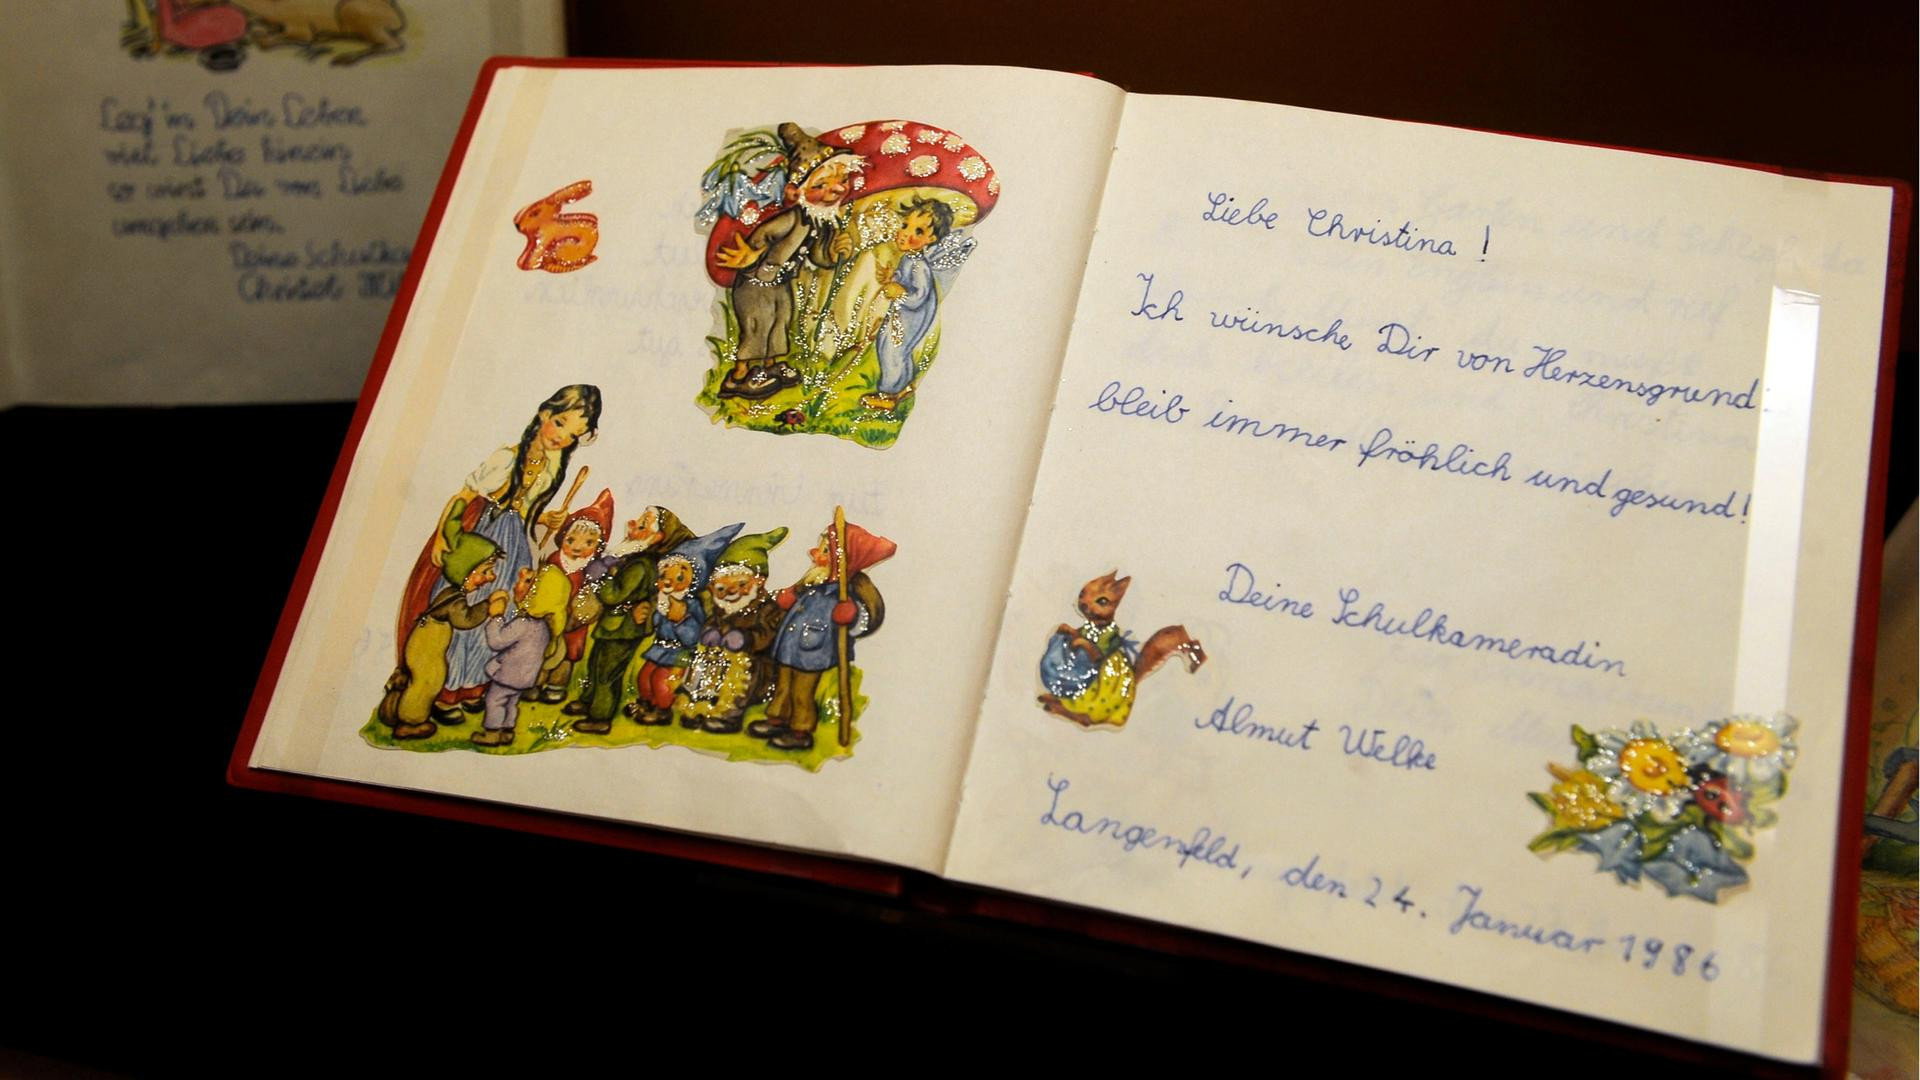 Leg' in Dein Leben
viel Liebe hinein
so wirst Du von Liebe
umgeben sein.
Deine
Christel
Liebe Christina !
Ich wünsche Dir von Herzensgrund:
bleib immer fröhlich und gesund!
Deine Schulkameradin
Almut Welke
Langenfeld, den 24. Januar 1986